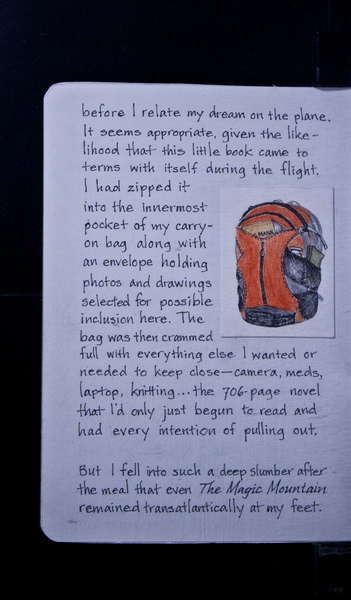 before I relate my dream on the plane.
It seems appropriate, given the like-
lihood that this little book came to
terms with itself during the flight.
I had zipped it
into the innermost
pocket of my carry-
on bag along with
an envelope holding
photos and drawings
selected for possible
inclusion here. The
bag was then crammed
full with everything else I wanted or
needed to keep close—camera, meds,
laptop, knitting...the 706-page novel
that I'd only just begun to read and
had every intention of pulling out.
But I fell into such a deep slumber after
the meal that even The Magic Mountain
remained transatlantically at my feet.